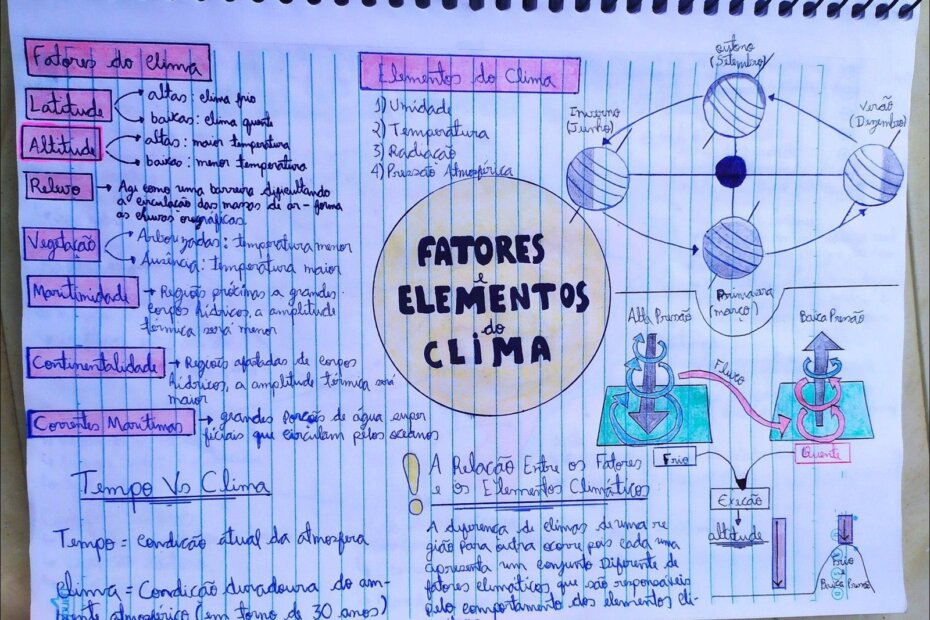 Fatores do clima
Latitude
altas: clima frio
baixas: clima quente
Altitude
altas: maior temperatura
baixas: menor temperatura
Relevo
Agi como uma barreira dificultando
a circulação das massas de ar - forma
as chuvas orográficas
Vegetação
Arborizadas: temperatura menor
Ausência: temperatura maior
Maritimidade
Regiões próximas a grandes
corpos hídricos, a amplitude
térmica será menor
Continentalidade
Regiões afastadas de corpos
hídricos, a amplitude térmica será
maior
Correntes Marítimas
grandes porções de água super
ficiais que circulam pelos oceanos
Tempo Vs Clima
Tempo = condição atual da atmosfera
Clima = Condição duradoura do am-
biente atmosférico (em torno de 30 anos)
Elementos do Clima
1) Umidade
2) Temperatura
3) Radiação
4) Pressão Atmosférica
FATORES
e
ELEMENTOS
do
CLIMA
! A Relação Entre os Fatores
e os Elementos Climáticos
A diferença de climas de uma re
gião para outra ocorre pois cada uma
apresenta um conjunto diferente de
fatores climáticos que são responsáveis
pelo comportamento dos elementos cli-
outono
(Setembro)
Inverno
(Junho)
Verão
(Dezembro)
Primavera
(março)
Alta Pressão
Baixa Pressão
Fluxo
Frio
Quente
Execão
altitude
Frio
e
Baixa Pressão